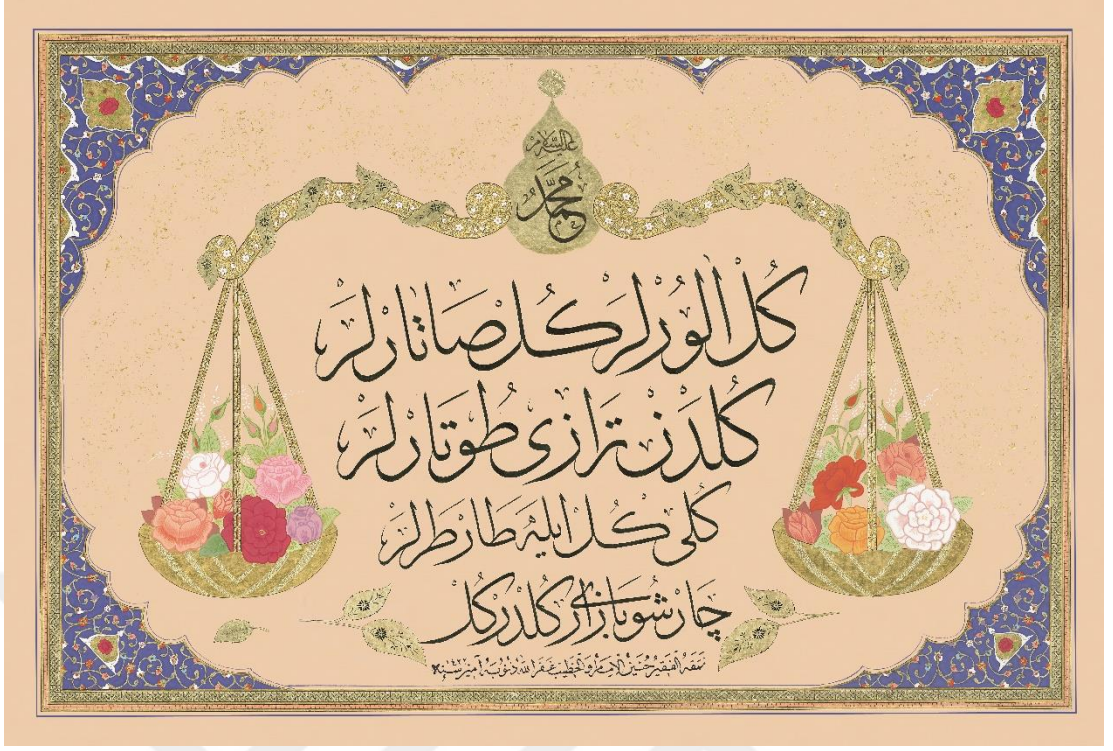 عليه السلام
محمد
كُلْ الُورْلَرْ كُلْ صَاتَارْلَرْ
كُلْدَنْ تَرَازِى طُوتَارْلَرْ
كُلِى كُلْ ايلَه طَارْطَرْلَرْ
چَارْشُو بَازَارِى كُلْدُرْ كُلْ
الفقير حسين الامام والخطيب غفر الله ذنوبه آمين